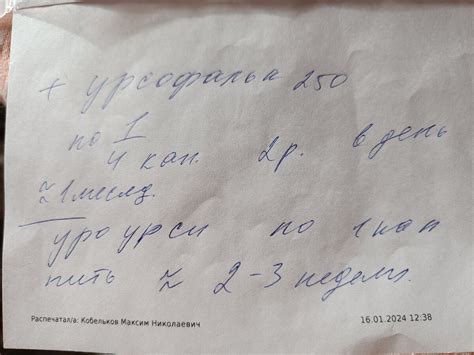 + урсофальк 250
по 1
4 кап. 2р. в день
≈ 1 месяц.
уро урси по 1 кап
пить ≈ 2-3 недели.
Распечатал/а: Кобельков Максим Николаевич
16.01.2024 12:38